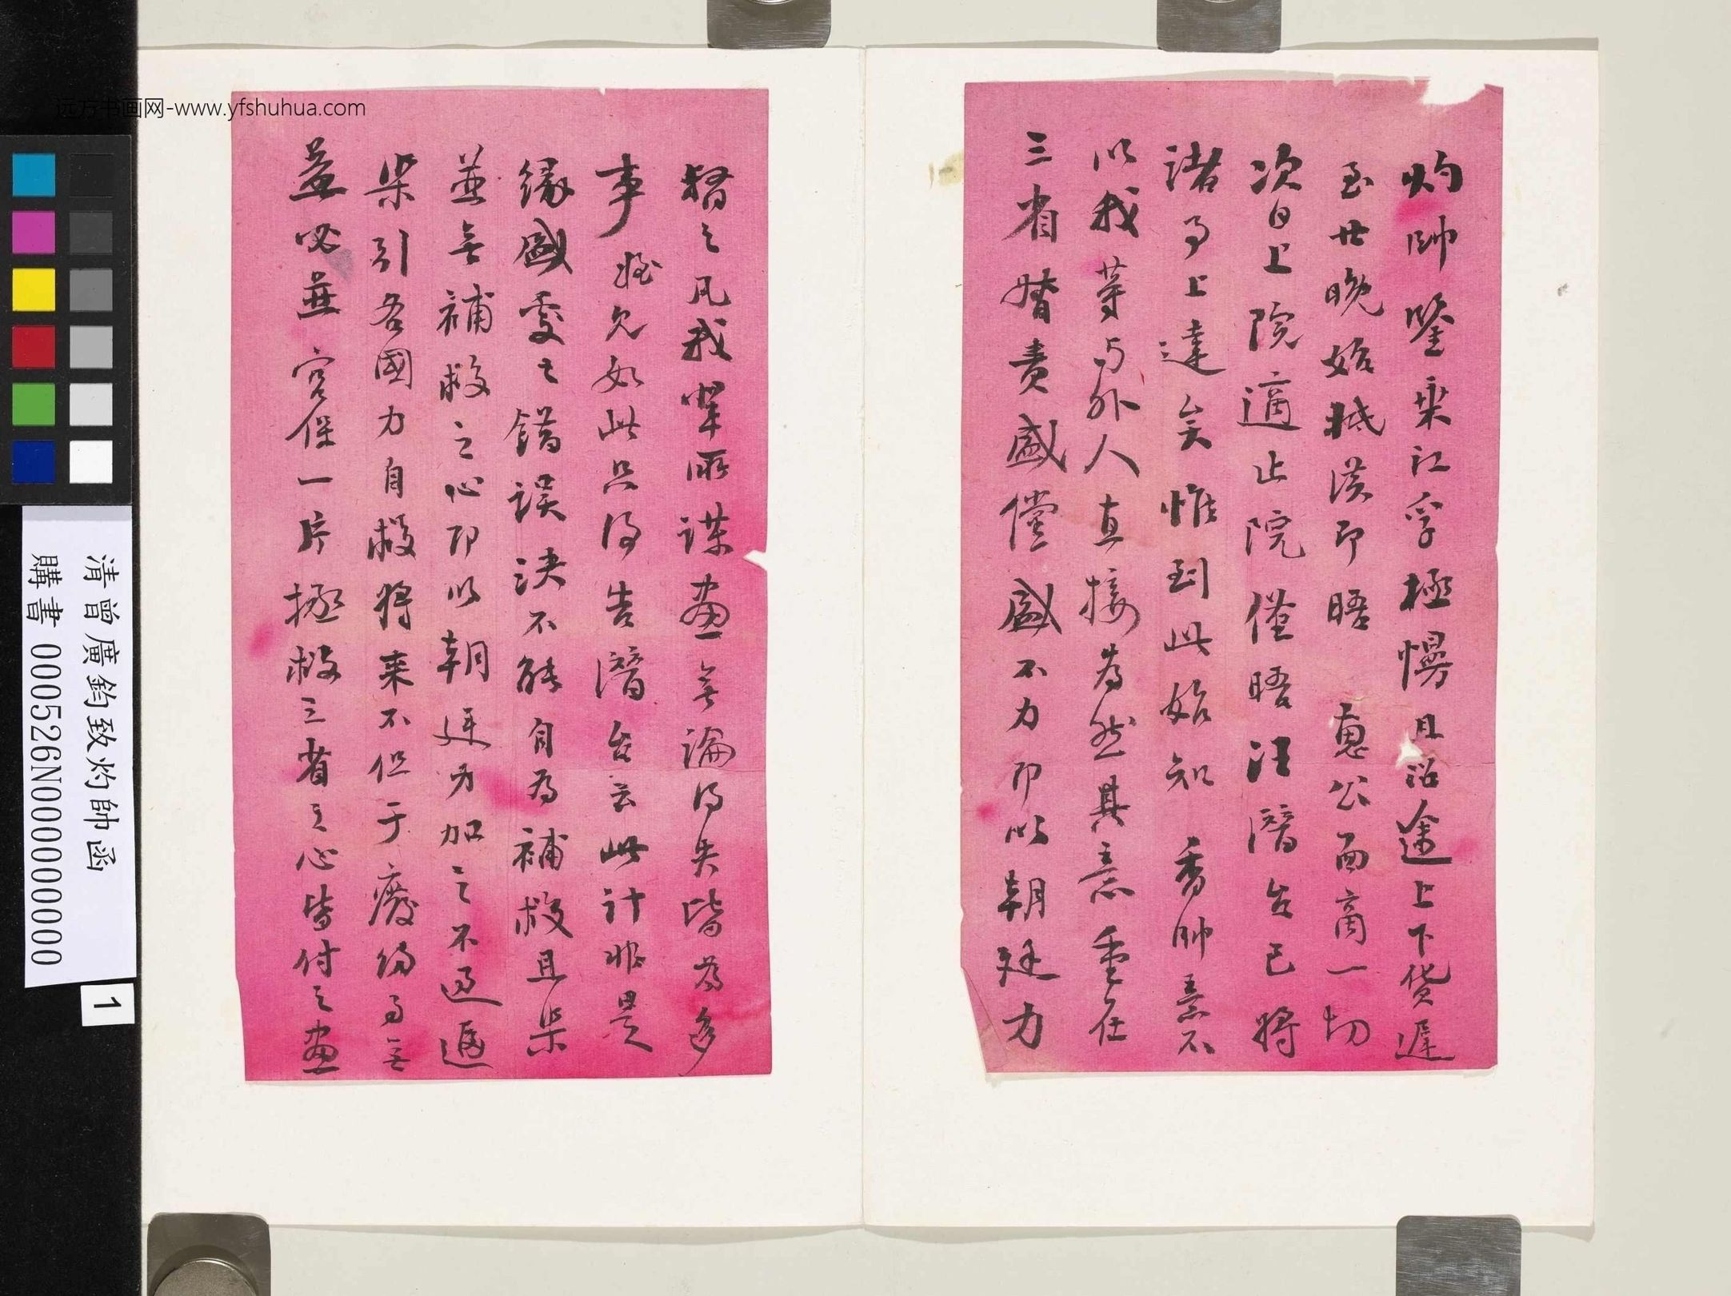 远方书画网-www.yfshuhua.com
灼帥鑒乘江孚極慢且沿途上下貨遲
至廿晚始抵漢即晤 蕙公面商一切
次日上院適止院僅晤汪潛台已將
諸事上達矣惟到此始知 香帥意不
以我等与外人直接為然其意重在
三省督責盛儻盛不力即以朝廷力
督之凡我輩所謀畫無論得失皆為多
事 既如此只得告潛台云此計非是
緣盛處之錯誤決不能自為補救且柴
並無補救之心即以朝廷力加之不過逼
柴引各國力自救將來不但于廢約事無
益必並 宮保一片拯救三省之心皆付之畫
清曾廣鈞致灼帥函
購書 000526N000000000
1